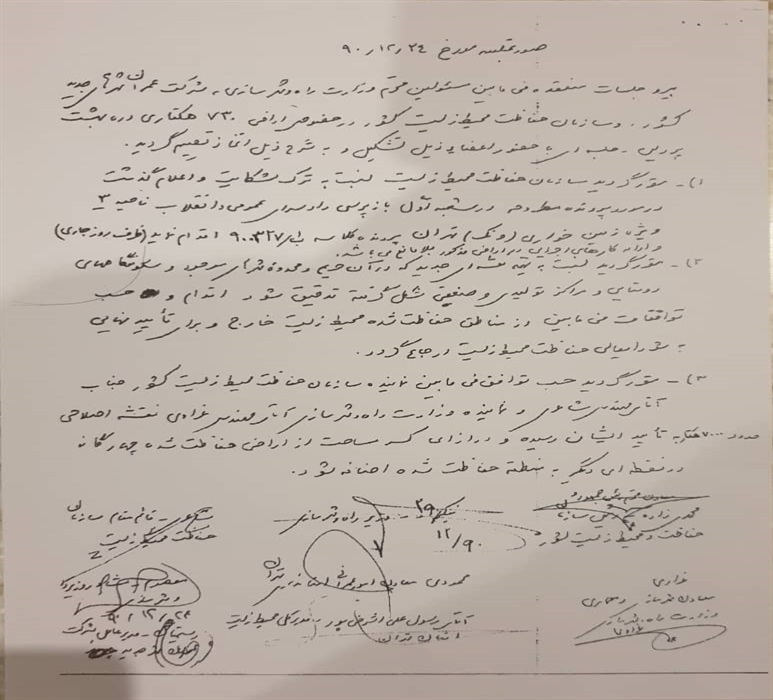 صورتجلسه مورخ ۹۰/۱۲/۲۴
پیرو جلسات منعقده فی مابین مسئولین محترم وزارت راه و شهرسازی، شرکت عمران شهرهای جدید
کشور و سازمان حفاظت محیط زیست کشور در خصوص اراضی ۷۳۰ هکتاری دره بهشت
پردیس جلسه ای با حضور اعضای ذیل تشکیل و به شرح ذیل اتخاذ تصمیم گردید.
۱)- مقرر گردید سازمان حفاظت محیط زیست نسبت به ترک شکایت و اعلام گذشت
در مورد پرونده مطروحه در شعبه اول بازپرسی دادسرای عمومی و انقلاب ناحیه ۳
ویژه زمین خواری (ونک) تهران پرونده کلاسه ۹۰۰۳۲۷ اقدام نماید (ظرف روز جاری)
و ادامه کارهای اجرایی در اراضی مذکور بلامانع می باشد.
۲)- مقرر گردید نسبت به تهیه نقشه ای جدید که در آن حریم و محدوده شهرهای موجود و سکونتگاههای
روستایی و مراکز تولیدی و صنعتی شکل گرفته تدقیق شود اقدام و حسب
توافقات فی مابین از مناطق حفاظت شده محیط زیست خارج و برای تأیید نهایی
به شورایعالی حفاظت محیط زیست ارجاع گردد.
۳)- مقرر گردید حسب توافق فی مابین نماینده سازمان حفاظت محیط زیست کشور جناب
آقای مهندس و نماینده وزارت راه و شهرسازی آقای مهندس نقشه اصلاحی
حدود ۷۰۰۰ هکتار به تأیید ایشان رسیده و در ازای کسر مساحت از اراضی حفاظت شده چهارگانه
در نقطه ای دیگر به منطقه حفاظت شده اضافه شود.
معاون محترم رئیس جمهور و
محمدی زاده رئیس سازمان
حفاظت محیط زیست کشور
نیکزاد وزیر راه و شهرسازی
۱۲/۹۰
قائم مقام سازمان
حفاظت محیط زیست
محمودی معاون استانداری
تهران
آقای رسول علی اشرفی پور مدیرکل محیط زیست
استان تهران
معاون شهرسازی و معماری
وزارت راه و شهرسازی
۹۰/۱۲/۲۴
مدیرعامل شرکت